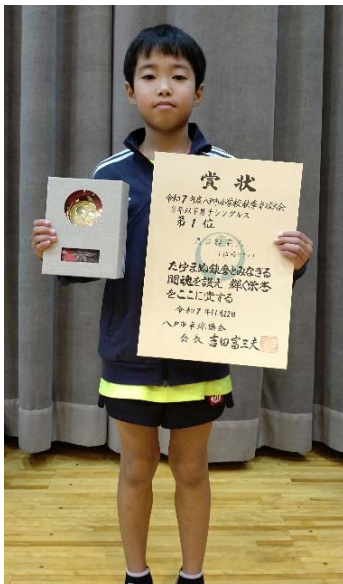 賞状
令和7年度八戸市小学校秋季卓球大会
3年以下男子シングルス
第1位
たゆまぬ鍛錬とみなぎる
闘魂を讃え 輝く栄誉
をここに賞する
令和7年11月22日
八戸市卓球協会
会長 吉田富三夫